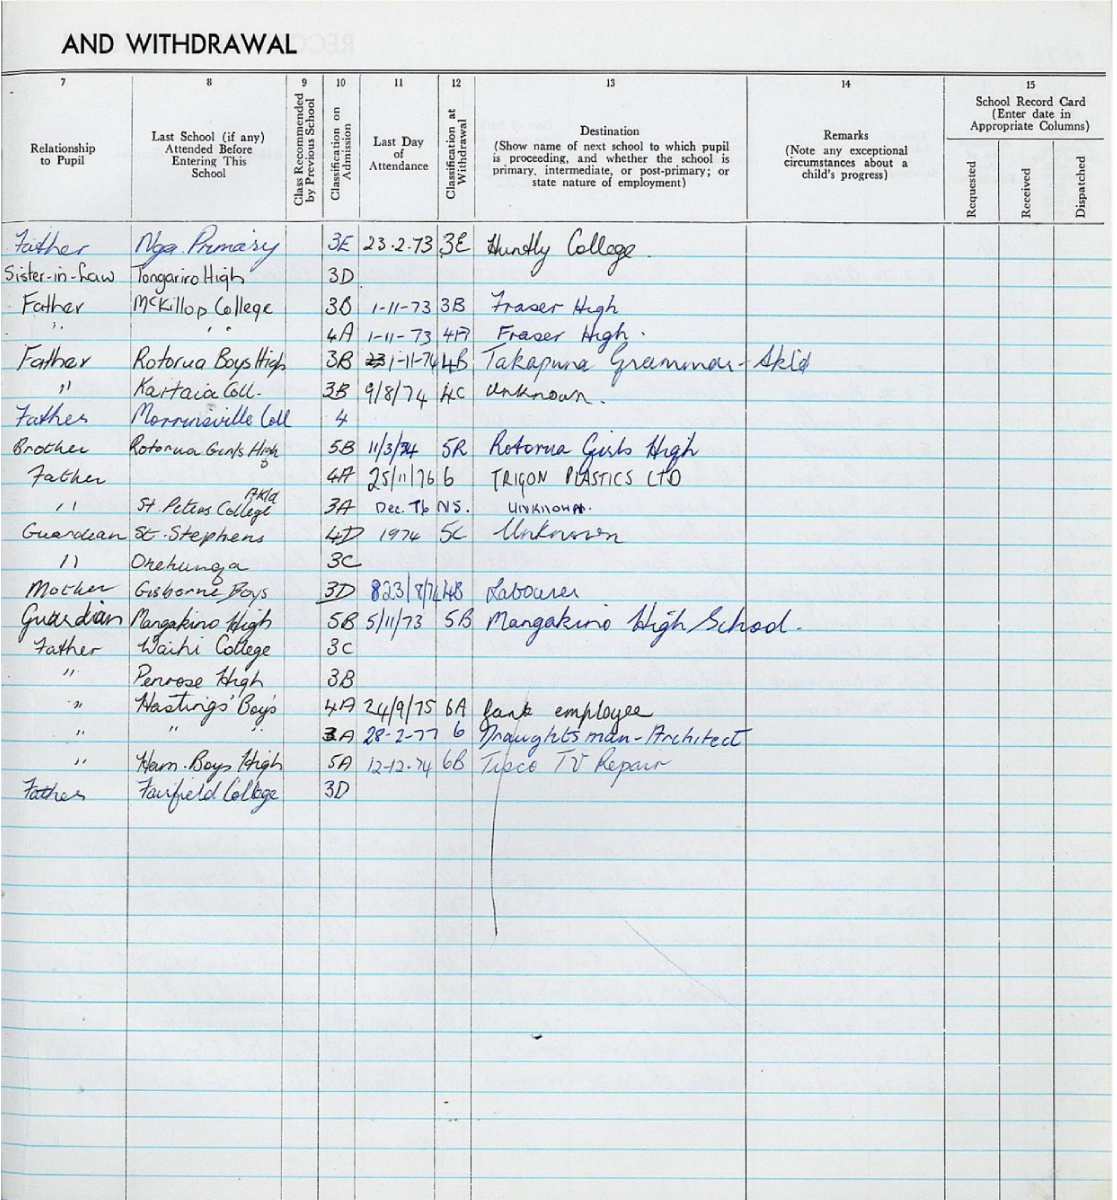 AND WITHDRAWAL
7 8 9 10 11 12 13 14 15
Relationship to Pupil
Last School (if any) Attended Before Entering This School
Class Recommended by Previous School
Classification on Admission
Last Day of Attendance
Classification at Withdrawal
Destination
(Show name of next school to which pupil is proceeding, and whether the school is primary, intermediate, or post-primary; or state nature of employment)
Remarks
(Note any exceptional circumstances about a child's progress)
School Record Card
(Enter date in Appropriate Columns)
Requested Received Dispatched
Father Nga Primary 3E 23.2.73 3E Huntly College.
Sister-in-Law Tongariro High 3D
Father McKillop College 3B 1-11-73 3B Fraser High
" " 4A 1-11-73 4A Fraser High.
Father Rotorua Boys High 3B 1-11-74 4B Takapuna Grammar - Akld
" Kaitaia Coll. 3B 9/8/74 4C Unknown.
Father Morrinsville Coll 4
Brother Rotorua Girls High 5B 11/3/74 5R Rotorua Girls High
Father 4A 25/11/76 6 TRIGON PLASTICS LTD
" St Peters College Akld 3A Dec. 76 NS. UNKNOWN.
Guardian St. Stephens 4D 1974 5C Unknown
" Onehunga 3C
Mother Gisborne Boys 3D 23/8/74 4B Labourer
Guardian Mangakino High 5B 5/11/73 5B Mangakino High School.
Father Waihi College 3C
" Penrose High 3B
" Hastings' Boys 4A 24/9/75 6A Bank employee
" " " 3A 28-2-77 6 Draughtsman-Architect
" Ham. Boys High 5A 12-12-74 6B Tisco TV Repair
Father Fairfield College 3D